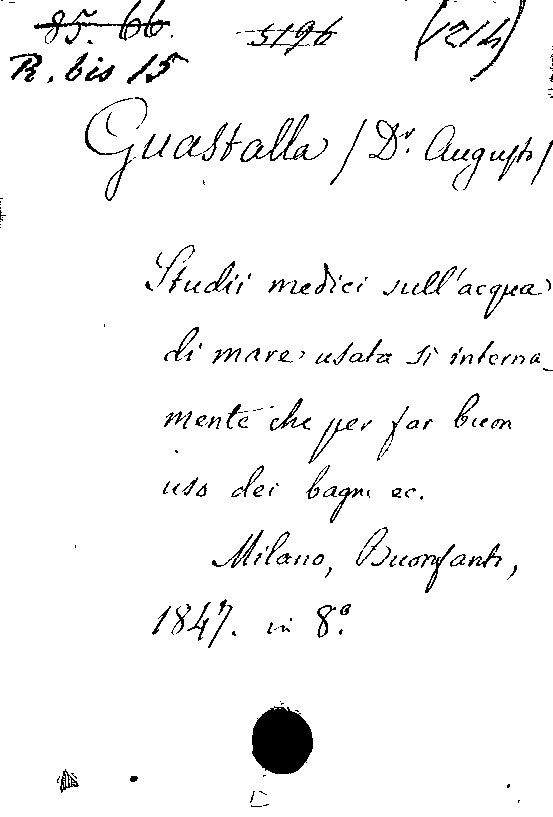 85. 66. 5196 (214)
R. bis 15
Guastalla / Dr. Augusto /
Studii medici sull'acqua
di mare usata sì interna_
mente che per far buon
uso dei bagni ec.
Milano, Buonfanti,
1847. in 8.°